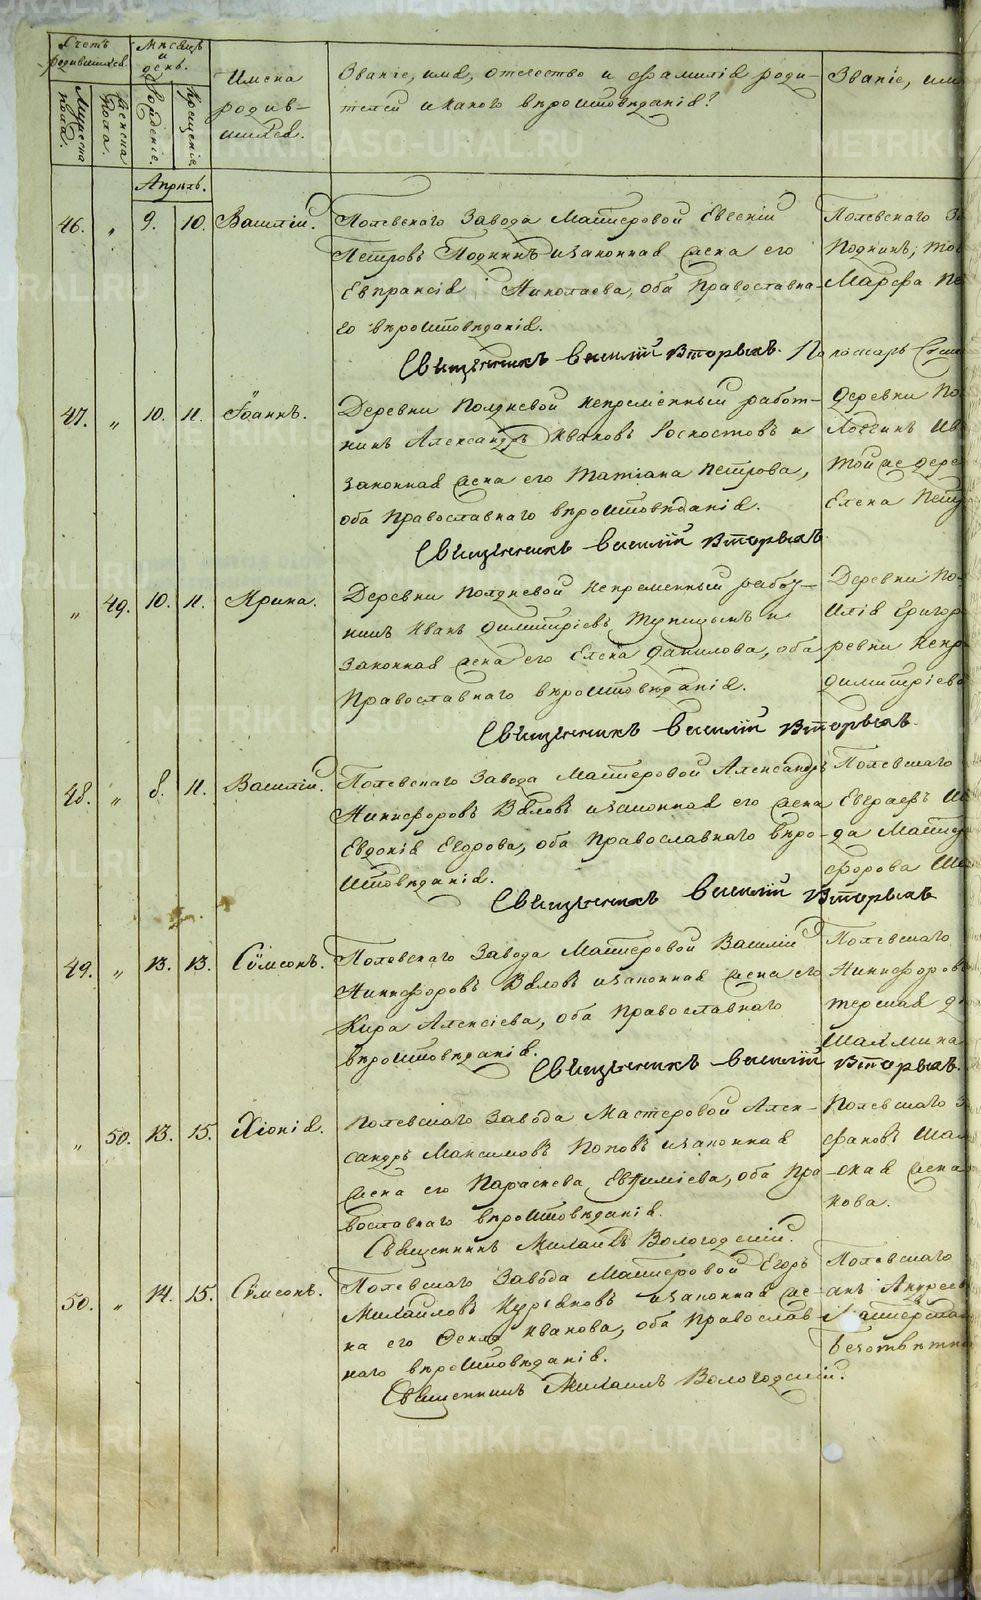 Счетъ родившихся.
Мѣсяцъ и день.
Имена родившихся.
Званіе, имя, отчество и фамилія роди-
телей и какого вѣроисповѣданія?
Званіе, им
Мужеска пола.
Женска пола.
Рожденіе.
Крещеніе.
Апрель.
46. " 9. 10. Василій.
Полевскаго Завода Мастеровой Евгеній
Петровъ и законная жена его
Евпраксія Николаева, оба Православна-
го вѣроисповѣданія.
Священникъ Василій Вторыхъ.
Полевскаго За
Марѳа Пе
47. " 10. 11. Іоаннъ.
Деревни Полдневой непременный работ-
никъ Александръ Ивановъ и
законная жена его Татіана Петрова,
оба Православнаго вѣроисповѣданія.
Священникъ Василій Вторыхъ
Деревни По
той же дере
Елена Петр
" 49. 10. 11. Ирина.
Деревни Полдневой Непременный работ-
никъ Иванъ Димитріевъ Тупицынъ и
законная жена его Елена Данилова, оба
Православнаго вѣроисповѣданія.
Священникъ Василій Вторыхъ.
Деревни По-
Илія Григор
ревни Непр
Димитріева
48. " 8. 11. Василій.
Полевскаго Завода Мастеровой Александръ
Никифоровъ Бѣловъ и законная его жена
Евдокія Ѳедорова, оба Православнаго вѣро-
исповѣданія.
Священникъ Василій Вторыхъ
Полевскаго
Евграфъ Ив
да Мастер
форова Ша
49. " 13. 13. Сѵмеонъ.
Полевскаго Завода Мастеровой Василій
Никифоровъ Бѣловъ и законная жена его
Кира Алексіева, оба Православнаго
вѣроисповѣданія.
Священникъ Василій Вторыхъ.
Полевскаго
Никифоровъ
терская д
" 50. 13. 15. Хіонія.
Полевскаго Завода Мастеровой Алек-
сандръ Максимовъ Поповъ и законная
жена его Параскева Евѳиміева, оба Пра-
вославнаго вѣроисповѣданія.
Священникъ Михаилъ Вологодскій.
Полевскаго З
фановъ Ша
ская жена
нова.
50. " 14. 15. Сѵмеонъ.
Полевскаго Завода Мастеровой Егоръ
Михайловъ и законная же-
на его Ѳекла Иванова, оба Православ-
наго вѣроисповѣданія.
Священникъ Михаилъ Вологодскій.
Полевскаго
анъ Андреев
Мастерска
Безотвѣтн
METRIKI.GASO-URAL.RU